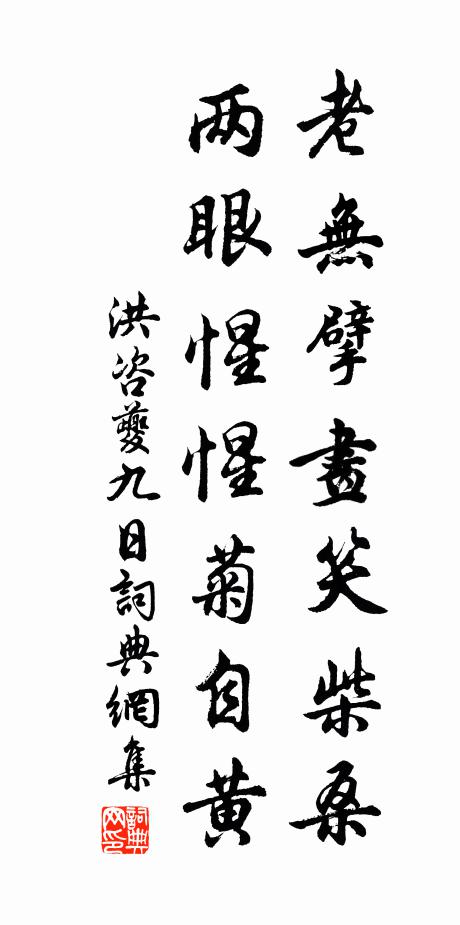 老無擘畫笑柴桑
两眼惺惺菊自黄
洪咨夔九日詞典網集
詞典網印